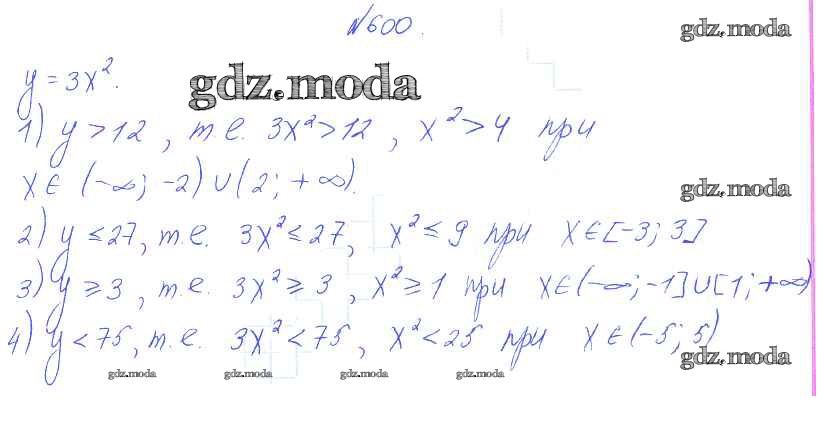 №600.
gdz.moda
y = 3x².
gdz.moda
1) y > 12, т.е. 3x² > 12, x² > 4 при
x ∈ (-∞; -2) ∪ (2; +∞).
gdz.moda
2) y ≤ 27, т.е. 3x² ≤ 27, x² ≤ 9 при x ∈ [-3; 3]
3) y ≥ 3, т.е. 3x² ≥ 3, x² ≥ 1 при x ∈ (-∞; -1] ∪ [1; +∞)
4) y < 75, т.е. 3x² < 75, x² < 25 при x ∈ (-5; 5)
gdz.moda
gdz.moda gdz.moda gdz.moda gdz.moda